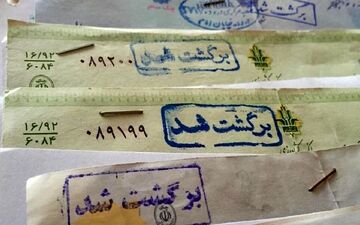 ۱۶/۹۲
۶۰۸۴
۰۸۹۲۰۰
برگشت شد
۱۶/۹۲
۶۰۸۴
۰۸۹۱۹۹
برگشت شد
برگشت شد